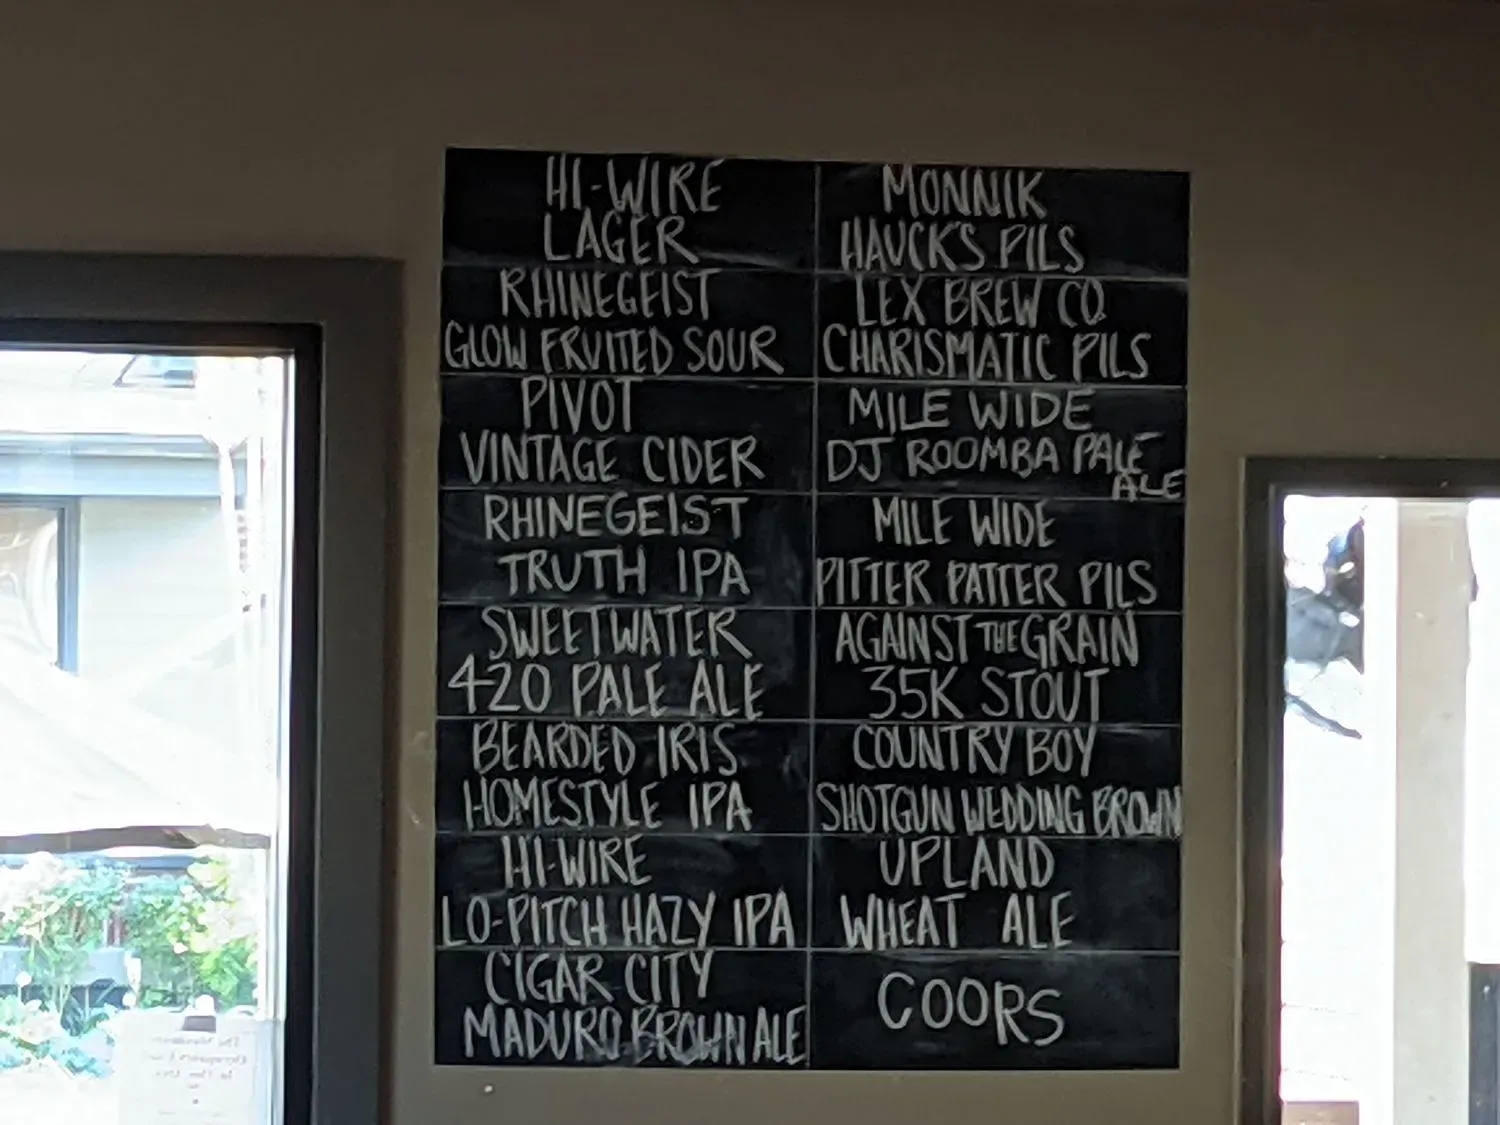 HI-WIRE
LAGER
RHINEGEIST
GLOW FRUITED SOUR
PIVOT
VINTAGE CIDER
RHINEGEIST
TRUTH IPA
SWEETWATER
420 PALE ALE
BEARDED IRIS
HOMESTYLE IPA
HI-WIRE
LO-PITCH HAZY IPA
CIGAR CITY
MADURO BROWN ALE
MONNIK
HAUCK'S PILS
LEX BREW CO
CHARISMATIC PILS
MILE WIDE
DJ ROOMBA PALE
ALE
MILE WIDE
PITTER PATTER PILS
AGAINST THE GRAIN
35K STOUT
COUNTRY BOY
SHOTGUN WEDDING BROWN
UPLAND
WHEAT ALE
COORS